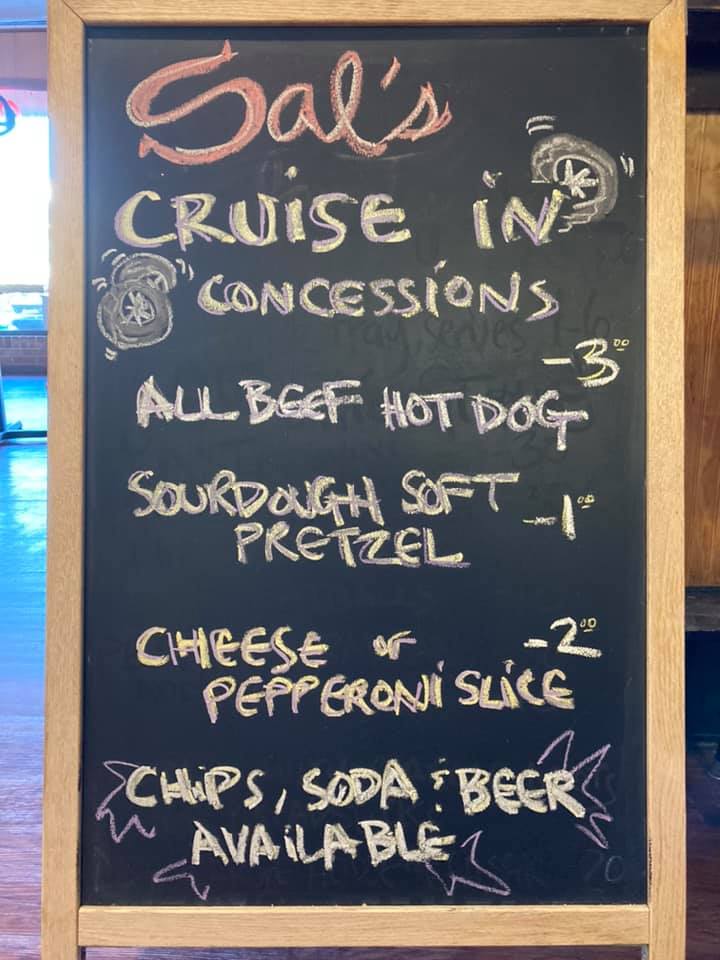 Sal's
CRUISE IN
CONCESSIONS
ALL BEEF HOT DOG -3⁰⁰
SOURDOUGH SOFT
PRETZEL -1⁰⁰
CHEESE or -2⁰⁰
PEPPERONI SLICE
CHIPS, SODA & BEER
AVAILABLE